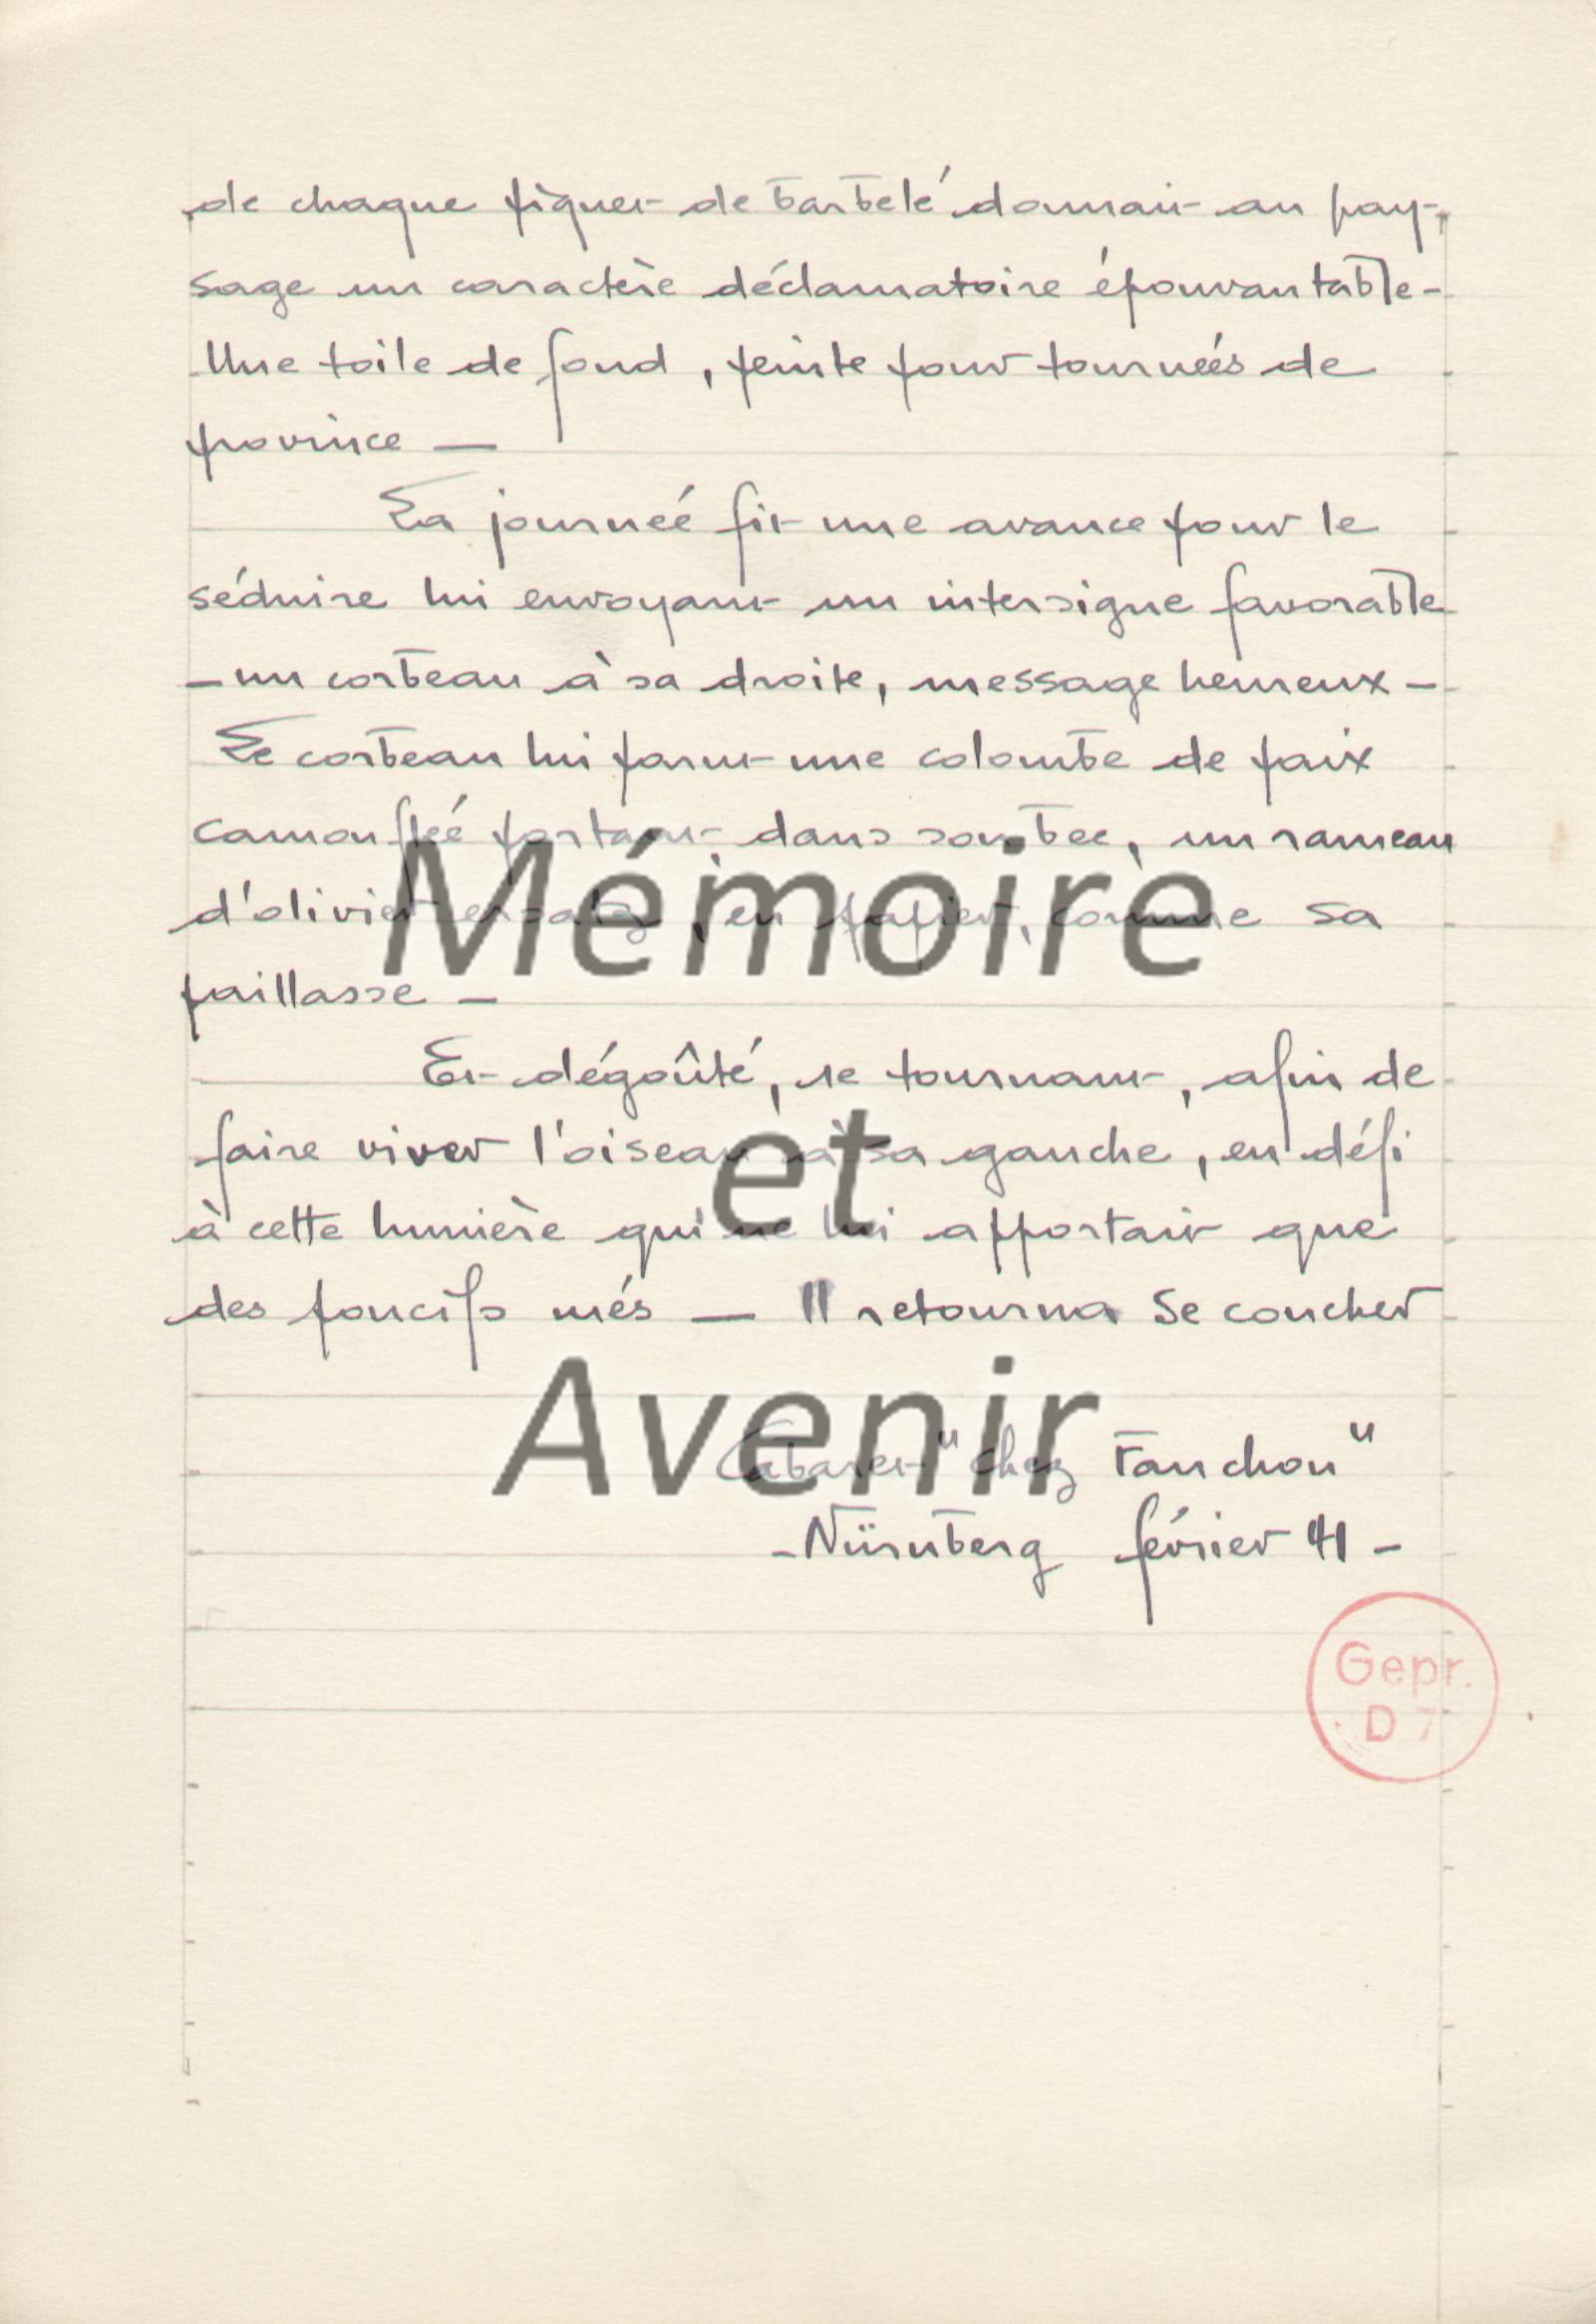 de chaque piquet de barbelé donnait au pay-
sage un caractère déclamatoire épouvantable -
Une toile de fond, peinte pour tournées de
province —
La journée fit une avance pour le
séduire lui envoyant un intersigne favorable
- un corbeau à sa droite, message heureux -
Le corbeau lui parut une colombe de paix
camouflée portant dans son bec, un rameau
d'olivier ersatz, en papier, comme sa
paillasse -
Et dégoûté, se tournant, afin de
faire virer l'oiseau à sa gauche, en défi
à cette lumière qui ne lui apportait que
des poncifs usés — Il retourna se coucher
Cabaret "Chez Fanchon"
- Nürnberg février 41 -
Gepr.
D 7
Mémoire
et
Avenir